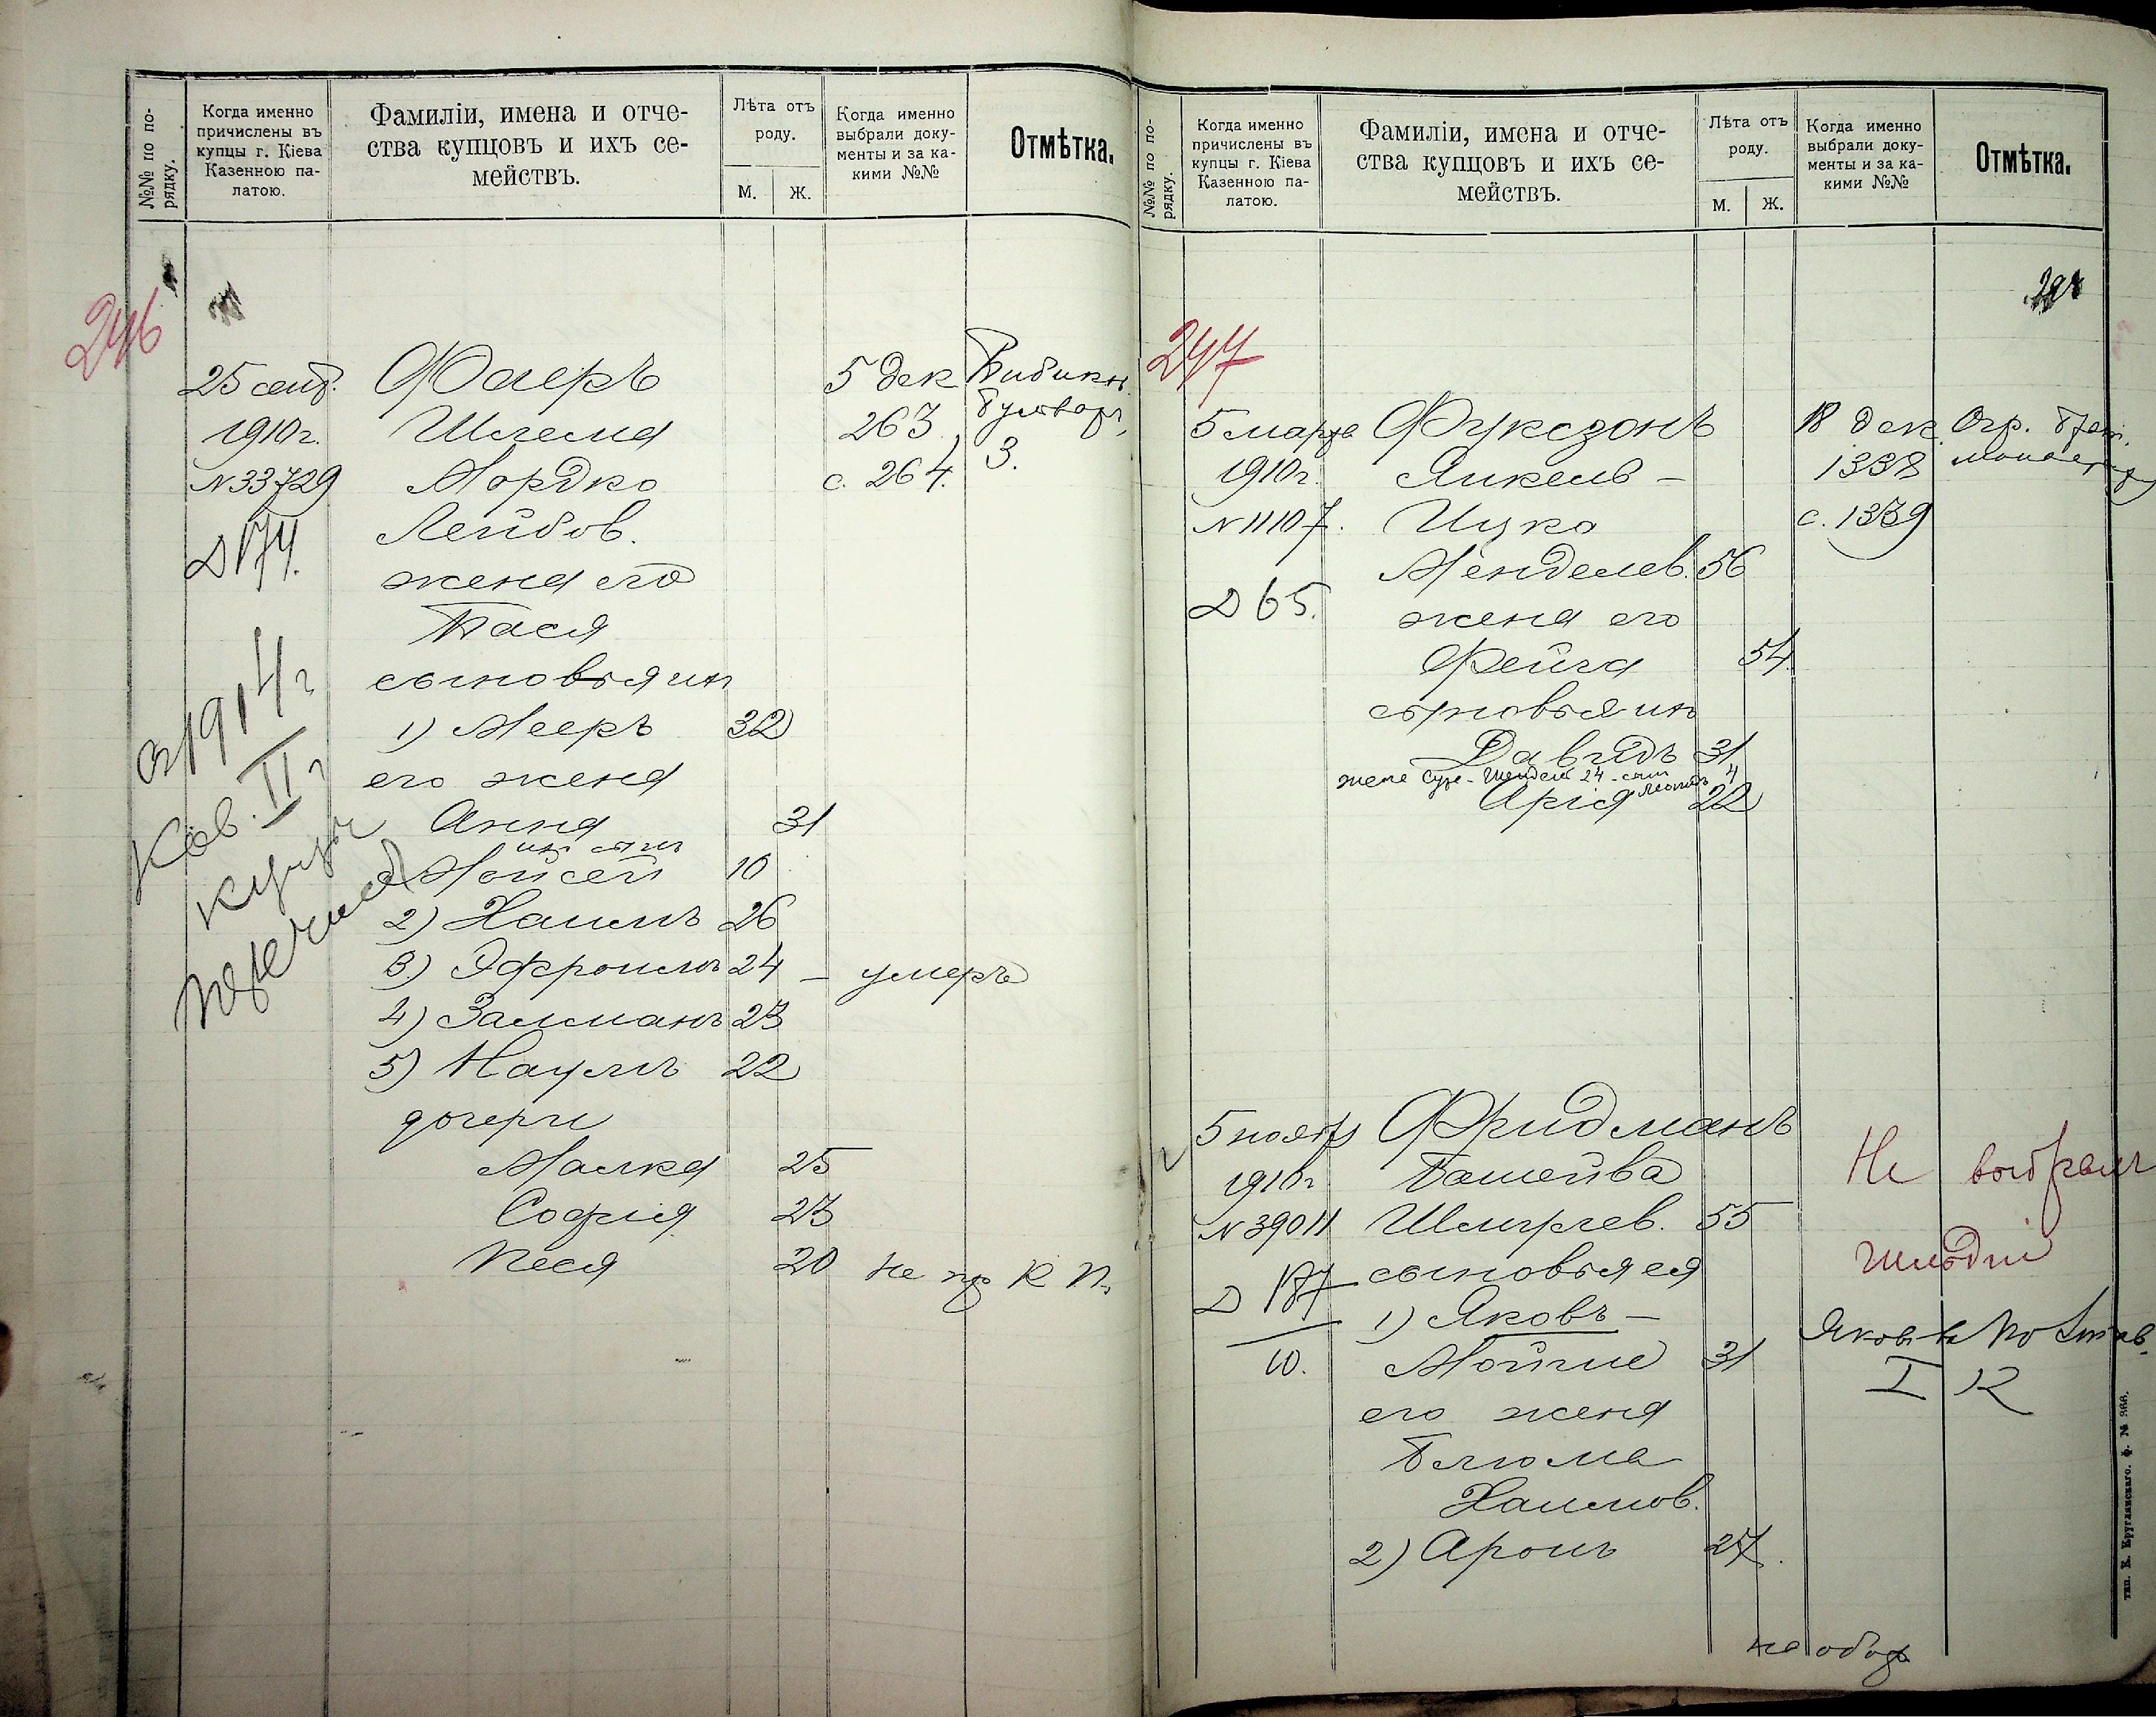 №№ по по-
рядку.
Когда именно
причислены въ
купцы г. Кіева
Казенною па-
латою.
Фамиліи, имена и отче-
ства купцовъ и ихъ се-
мействъ.
Лѣта отъ
роду.
М.
Ж.
Когда именно
выбрали доку-
менты и за ка-
кими №№
Отмѣтка.
246
25 сент.
1910 г.
№ 33729
Д 174.
съ 1914 г
Кіев. II г
купцы
перечисл
Фаеръ
Шлема
Мордко
Лейбов.
жена его
Бася
сыновья ихъ
1) Мееръ 32
его жена
Анна 31
ихъ сынъ
Мойсей 10
2) Хаимъ 26
3) Эфроимъ 24 – умеръ
4) Залманъ 23
5) Наумъ 22
дочери
Малка 25
Софія 23
Песя 20 не пр К П.
5 дек
263
с. 264.
Бибик.
бульвар,
3.
№№ по по-
рядку.
Когда именно
причислены въ
купцы г. Кіева
Казенною па-
латою.
Фамиліи, имена и отче-
ства купцовъ и ихъ се-
мействъ.
Лѣта отъ
роду.
М.
Ж.
Когда именно
выбрали доку-
менты и за ка-
кими №№
Отмѣтка.
247
5 марта
1910 г.
№ 11107.
Д 65.
Фуксзонъ
Янкель –
Ицко
Менделев. 56
жена его
Фейга 54
сыновья ихъ
Давидъ 31
жена Сура-Шендля 24 - сын Леонидъ 4
Арія 22
18 дек.
1338
с. 1339
5 нояб
1910 г
№ 39011
Д 187
10.
Фридманъ
Башейва
Шмулев. 55
сыновья ея
1) Яковъ –
Мойше 31
его жена
Блюма
Хаимов.
2) Аронъ 27.
Не выбрали
Яковъ
I К
не обор
тип. К. Круглянскаго. ф. № 366.